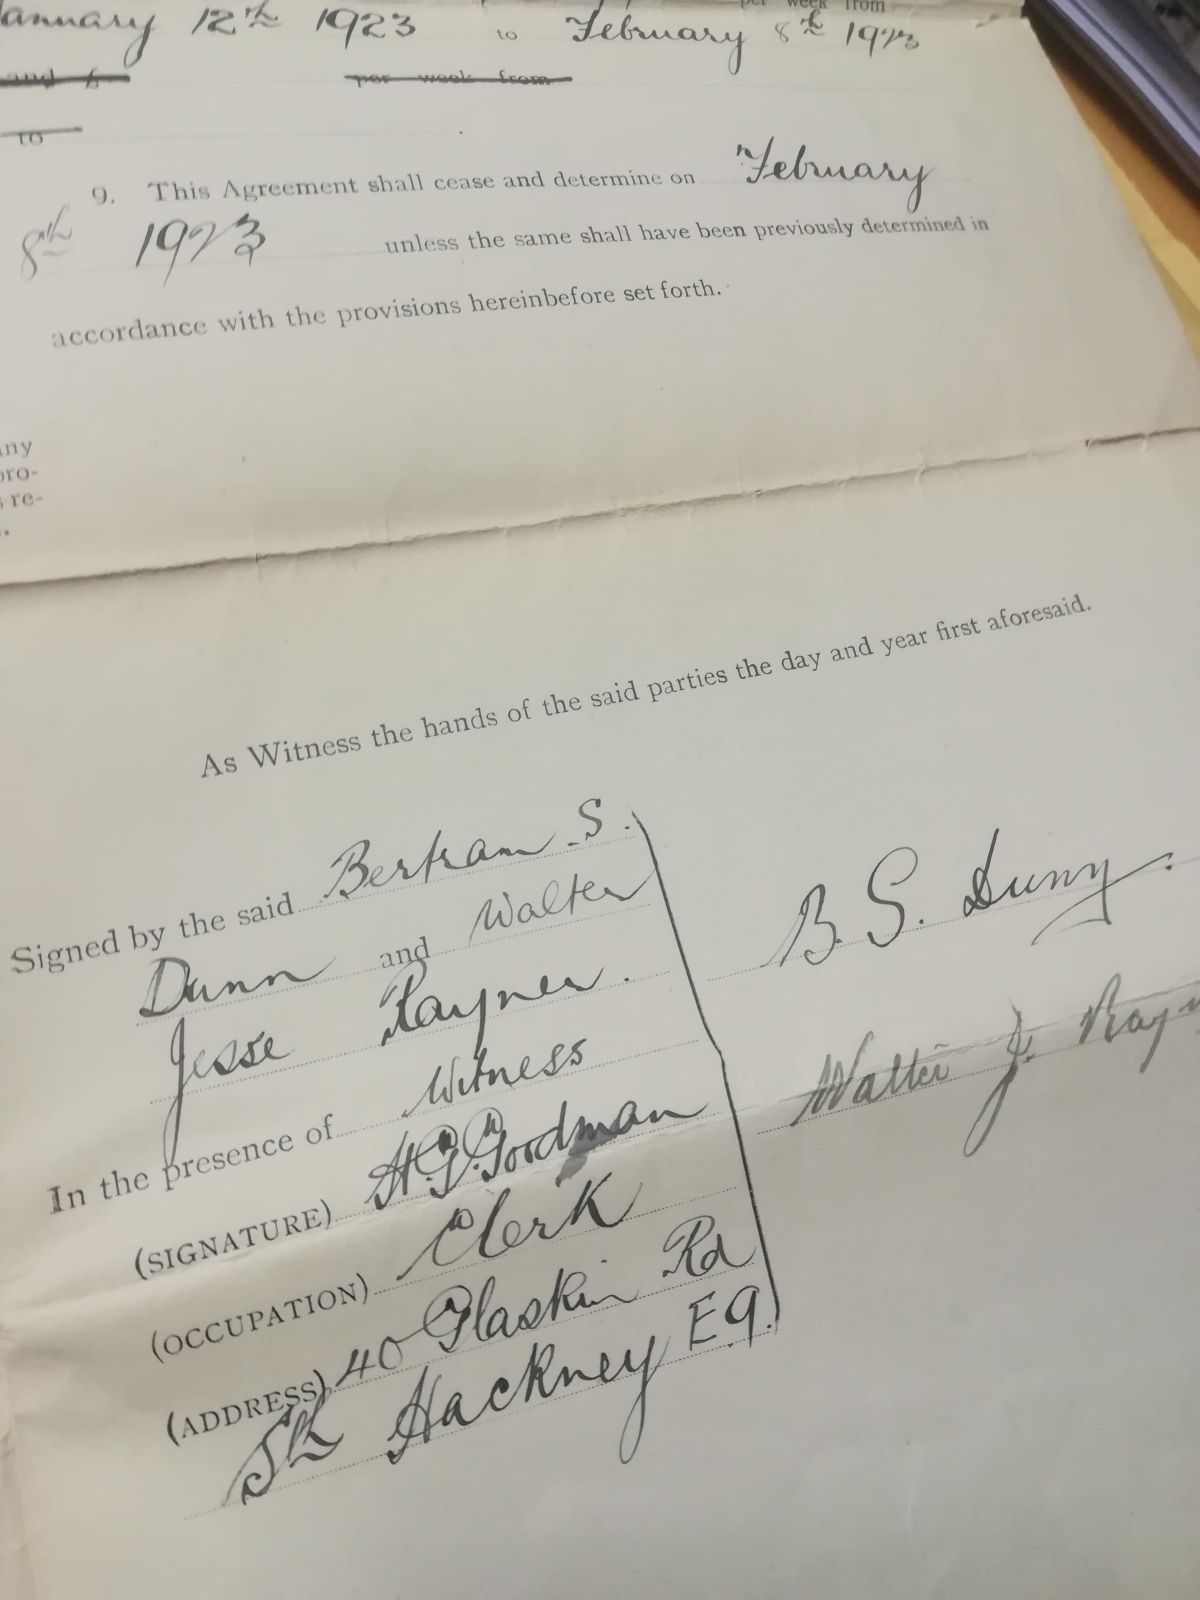 per week from
anuary 12th 1923 to February 8th 1923
and £ per week from
to
9. This Agreement shall cease and determine on February
8th 1923 unless the same shall have been previously determined in
accordance with the provisions hereinbefore set forth.
any
pro-
s re-
As Witness the hands of the said parties the day and year first aforesaid.
Signed by the said Bertram S.
Dunn and Walter
Jesse Rayner.
In the presence of Witness
(SIGNATURE) H.G. Goodman
(OCCUPATION) Clerk
(ADDRESS) 40 Glaskin Rd
Sth Hackney E9.
B. S. Dunn.
Walter J. Rayn